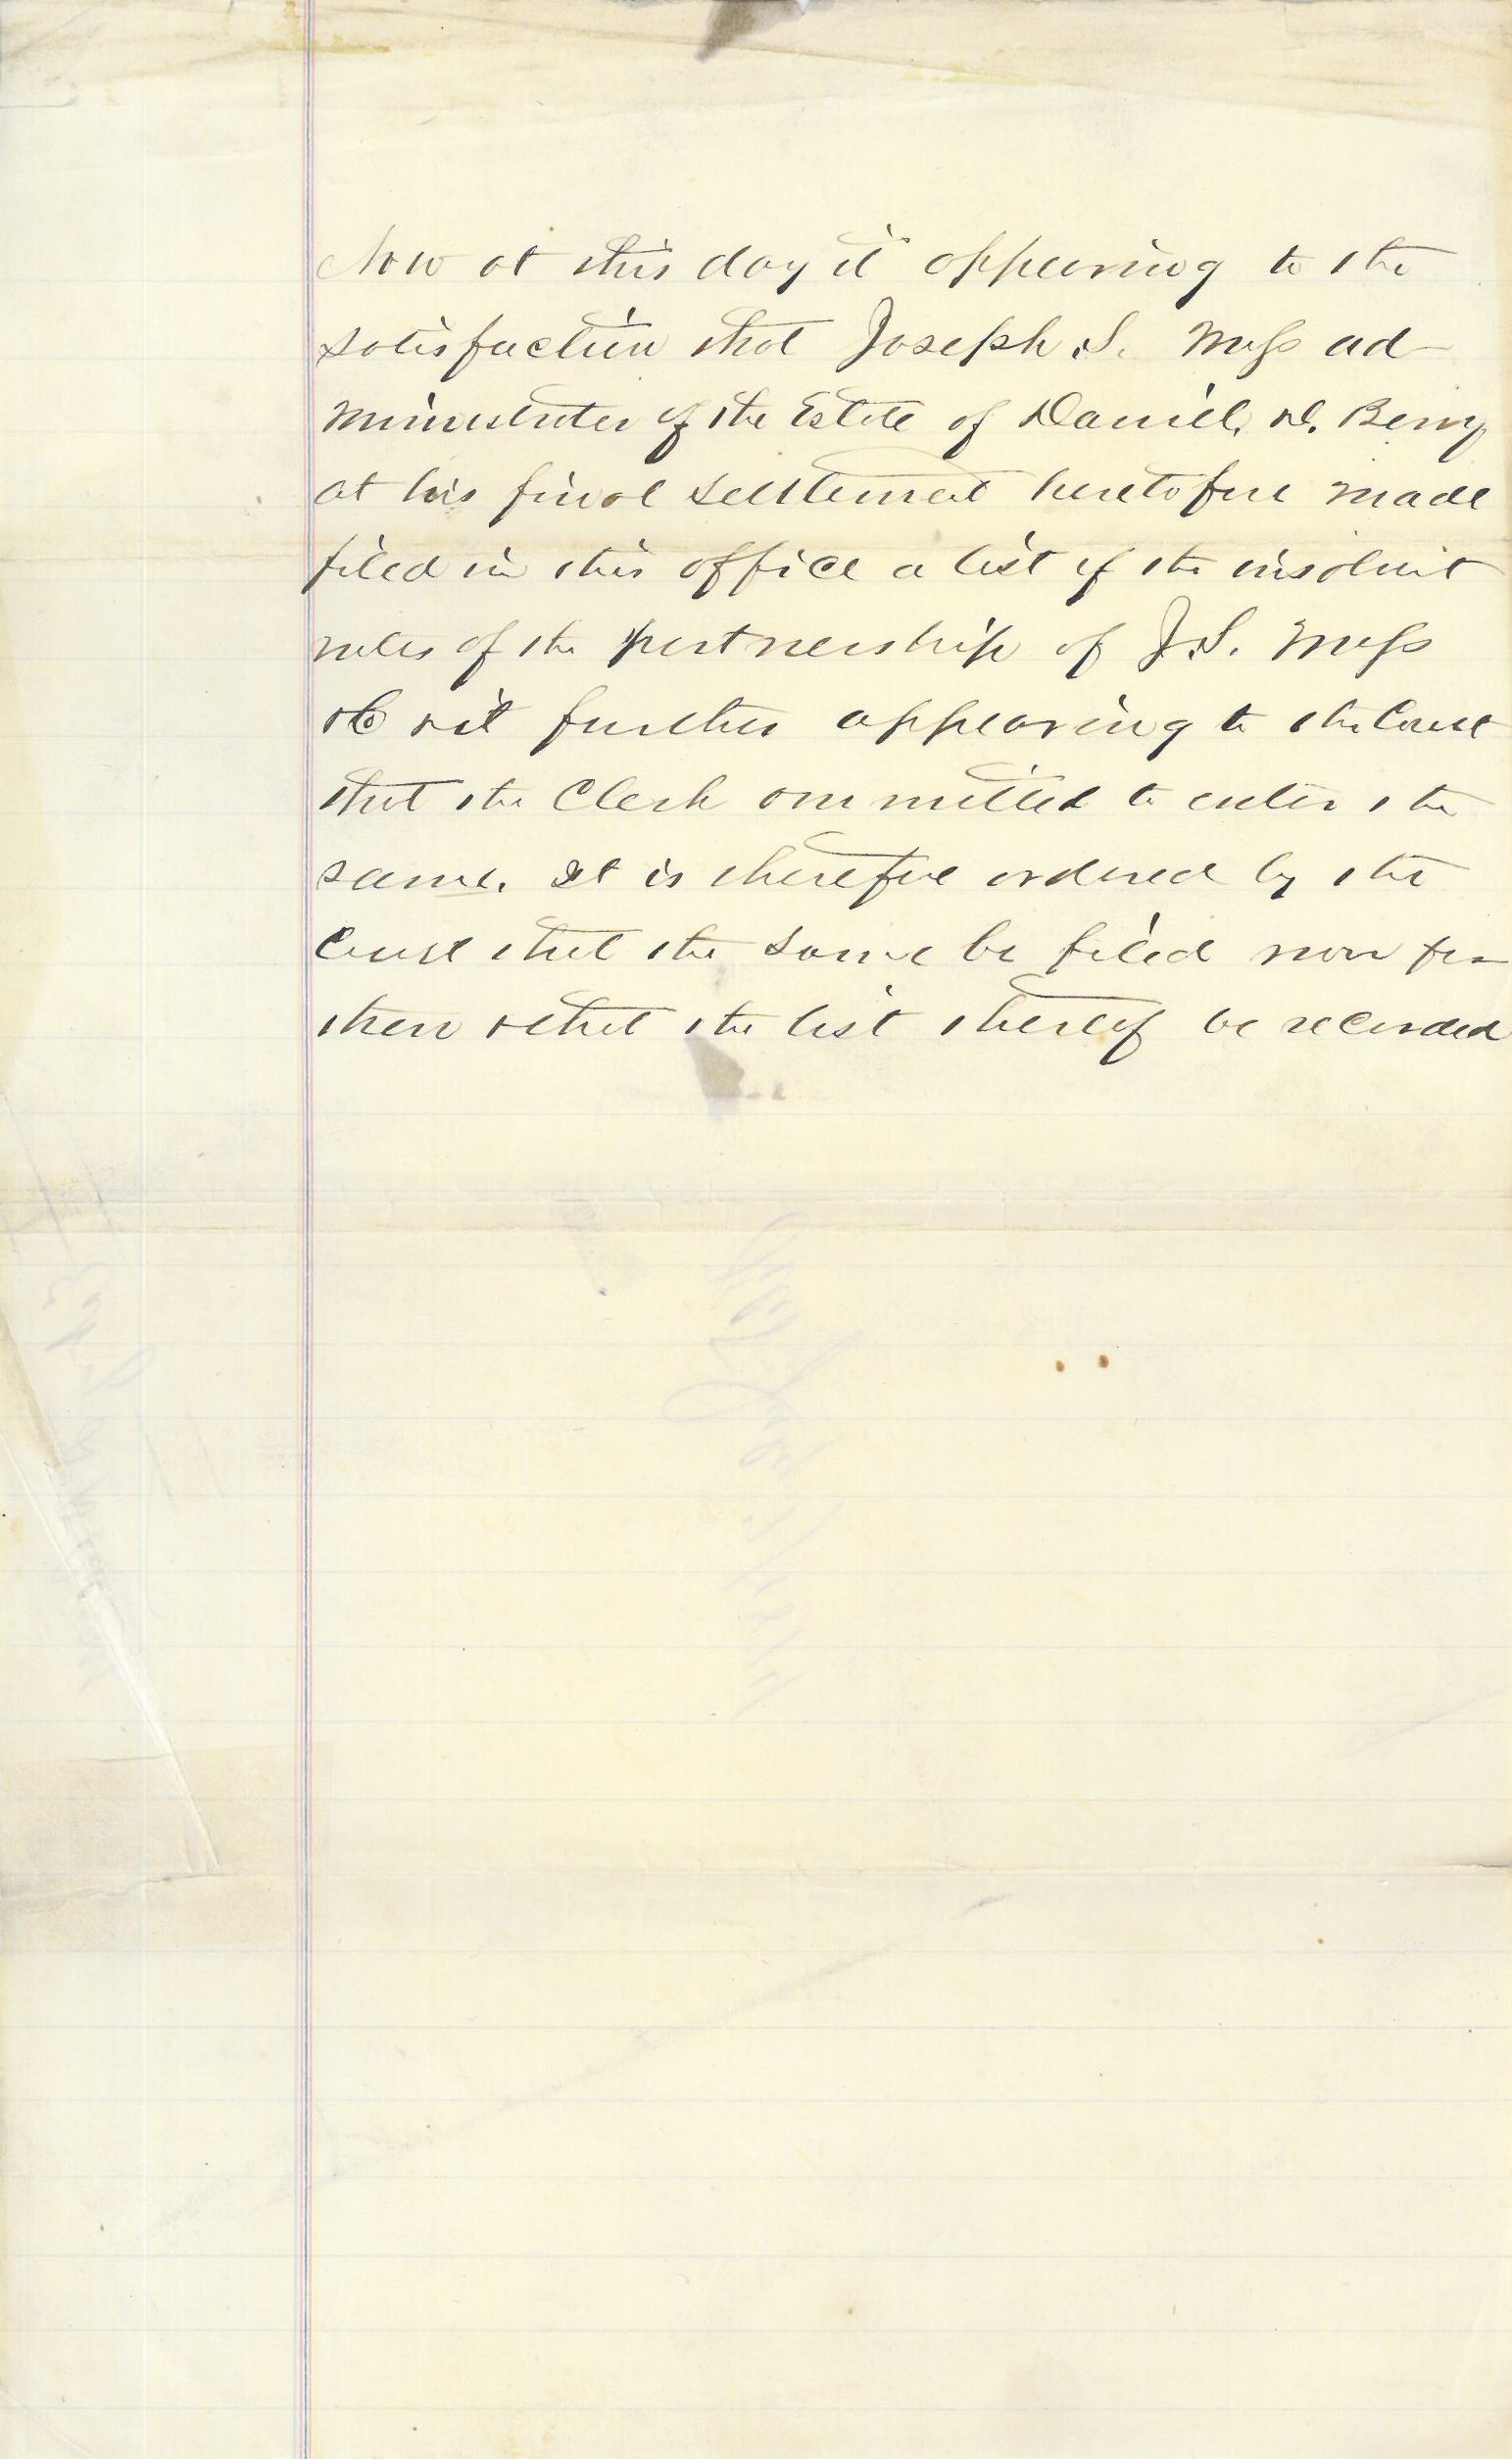 Now at this day it appearing to the
satisfaction that Joseph S. Moss ad-
ministrator of the Estate of Daniel D. Berry
at his final settlement heretofore made
filed in this office a list of the insolvent
notes of the partnership of J. S. Moss
& Co & it further appearing to the Court
that the Clerk ommitted to enter the
same. It is therefore ordered by the
Court that the same be filed now for
then & that the list thereof be recorded